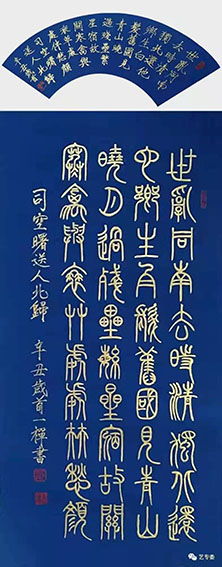 世亂
同南
去時清
獨北還
他鄉生白
髮舊國見
青山曉月
過殘壘繁
星宿故關
寒禽與
衰草處
處伴愁顏
司空曙
送人北歸
辛丑
世亂同南去時清獨北還
他鄉生白髮舊國見青山
曉月過殘壘繁星宿故關
寒禽與衰艸處處伴愁顏
司空曙送人北歸 辛丑歲首一禪書
艺专委